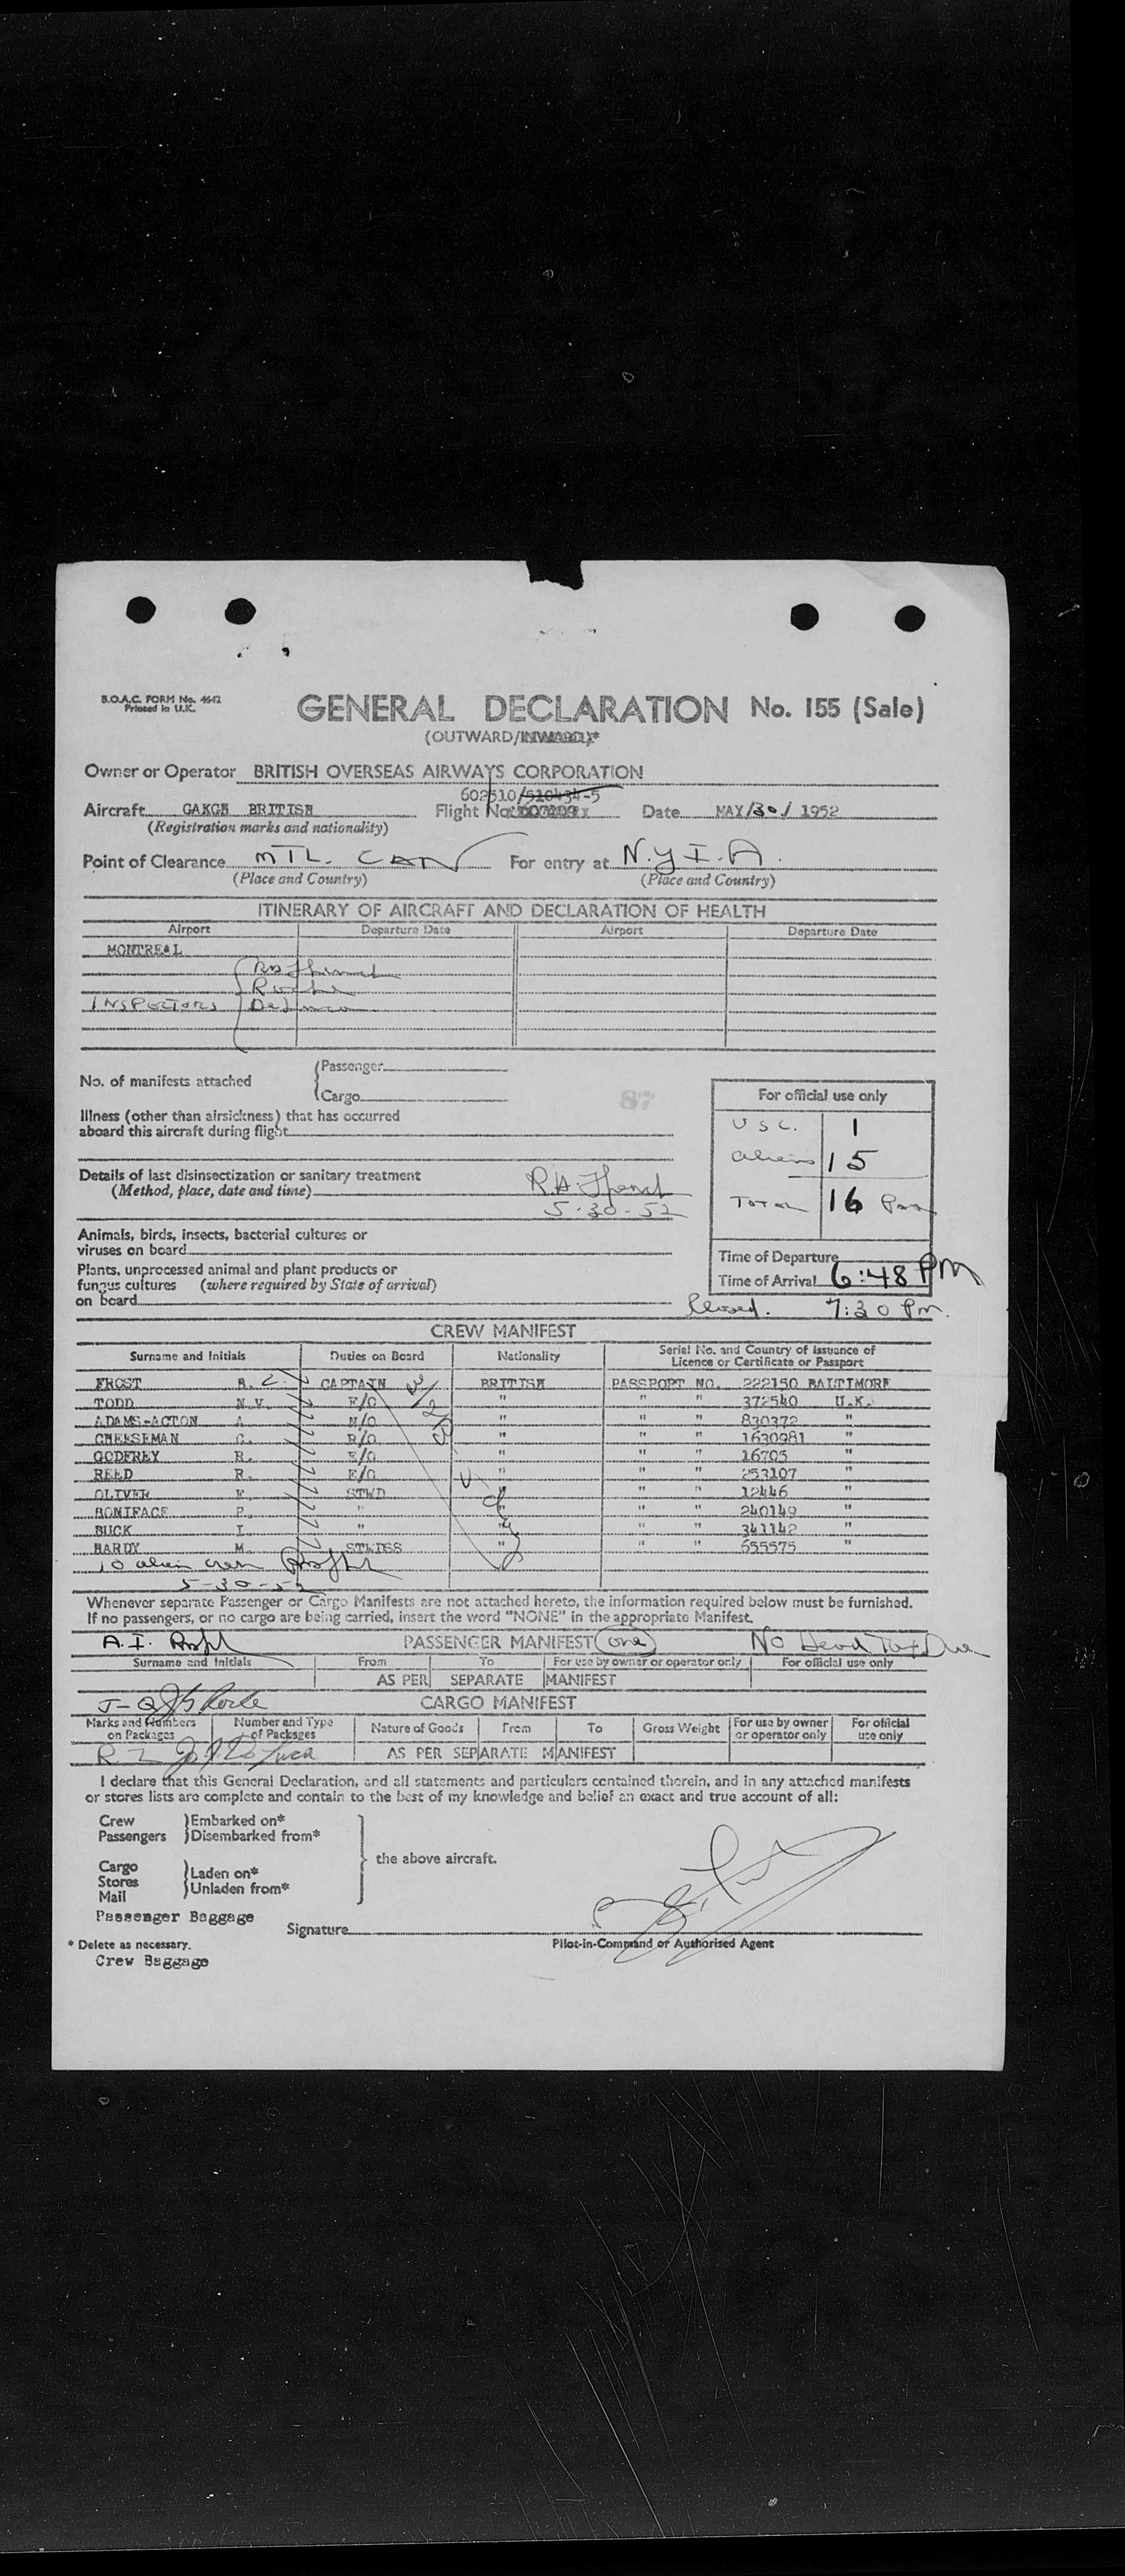 B.O.A.C. FORM No. 4642
Printed in U.K.
GENERAL DECLARATION No. 155 (Sale)
(OUTWARD/INWARD)*
Owner or Operator BRITISH OVERSEAS AIRWAYS CORPORATION
602510/510434-5
Aircraft GAKGH BRITISH Flight No. Date MAY/30/ 1952
(Registration marks and nationality)
Point of Clearance MTL. CAN For entry at N.Y.I.A.
(Place and Country) (Place and Country)
ITINERARY OF AIRCRAFT AND DECLARATION OF HEALTH
Airport Departure Date Airport Departure Date
MONTREAL
INSPECTORS
No. of manifests attached
(Passenger
(Cargo
87
For official use only
Illness (other than airsickness) that has occurred
aboard this aircraft during flight
U S C. 1
aliens 15
Details of last disinsectization or sanitary treatment
(Method, place, date and time)
5-30-52
Total 16 Pass
Animals, birds, insects, bacterial cultures or
viruses on board
Plants, unprocessed animal and plant products or
fungus cultures (where required by State of arrival)
on board
Time of Departure
Time of Arrival 6:48 PM
Closed. 7:30 Pm.
CREW MANIFEST
Surname and Initials Duties on Board Nationality Serial No. and Country of Issuance of
Licence or Certificate or Passport
FROST CAPTAIN BRITISH PASSPORT NO. 222150 BALTIMORE
TODD N.V. F/O " " " 372540 U.K.
ADAMS-ACTON A. N/O " " " 830372 "
CHEESEMAN C. R/O " " " 1630981 "
GODFREY R. E/O " " " 16705 "
REED R. E/O " " " 253107 "
OLIVER E. STWD " " " 12446 "
BONIFACE P. " " " " 240149 "
BUCK I. " " " " 341142 "
HARDY M. STWDSS " " " 655575 "
10 alien crew
5-30-52
Whenever separate Passenger or Cargo Manifests are not attached hereto, the information required below must be furnished.
If no passengers, or no cargo are being carried, insert the word "NONE" in the appropriate Manifest.
A.I. PASSENGER MANIFEST (one) No Head Tax Due
Surname and Initials From To For use by owner or operator only For official use only
AS PER SEPARATE MANIFEST
CARGO MANIFEST
Marks and Numbers on Packages Number and Type of Packages Nature of Goods From To Gross Weight For use by owner or operator only For official use only
AS PER SEPARATE MANIFEST
I declare that this General Declaration, and all statements and particulars contained therein, and in any attached manifests
or stores lists are complete and contain to the best of my knowledge and belief an exact and true account of all:
Crew )Embarked on*
Passengers )Disembarked from*
the above aircraft.
Cargo
Stores )Laden on*
Mail )Unladen from*
Passenger Baggage
Signature
* Delete as necessary. Pilot-in-Command or Authorised Agent
Crew Baggage